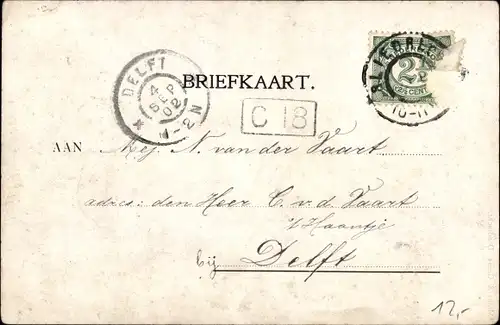 DELFT
4
SEP
02
1-2N
BRIEFKAART.
C 18
2½
CENT
10-11
AAN Mej. N. van der Vaart
adres: den Heer C. v. d. Vaart
't Haantje
bij Delft
12,-